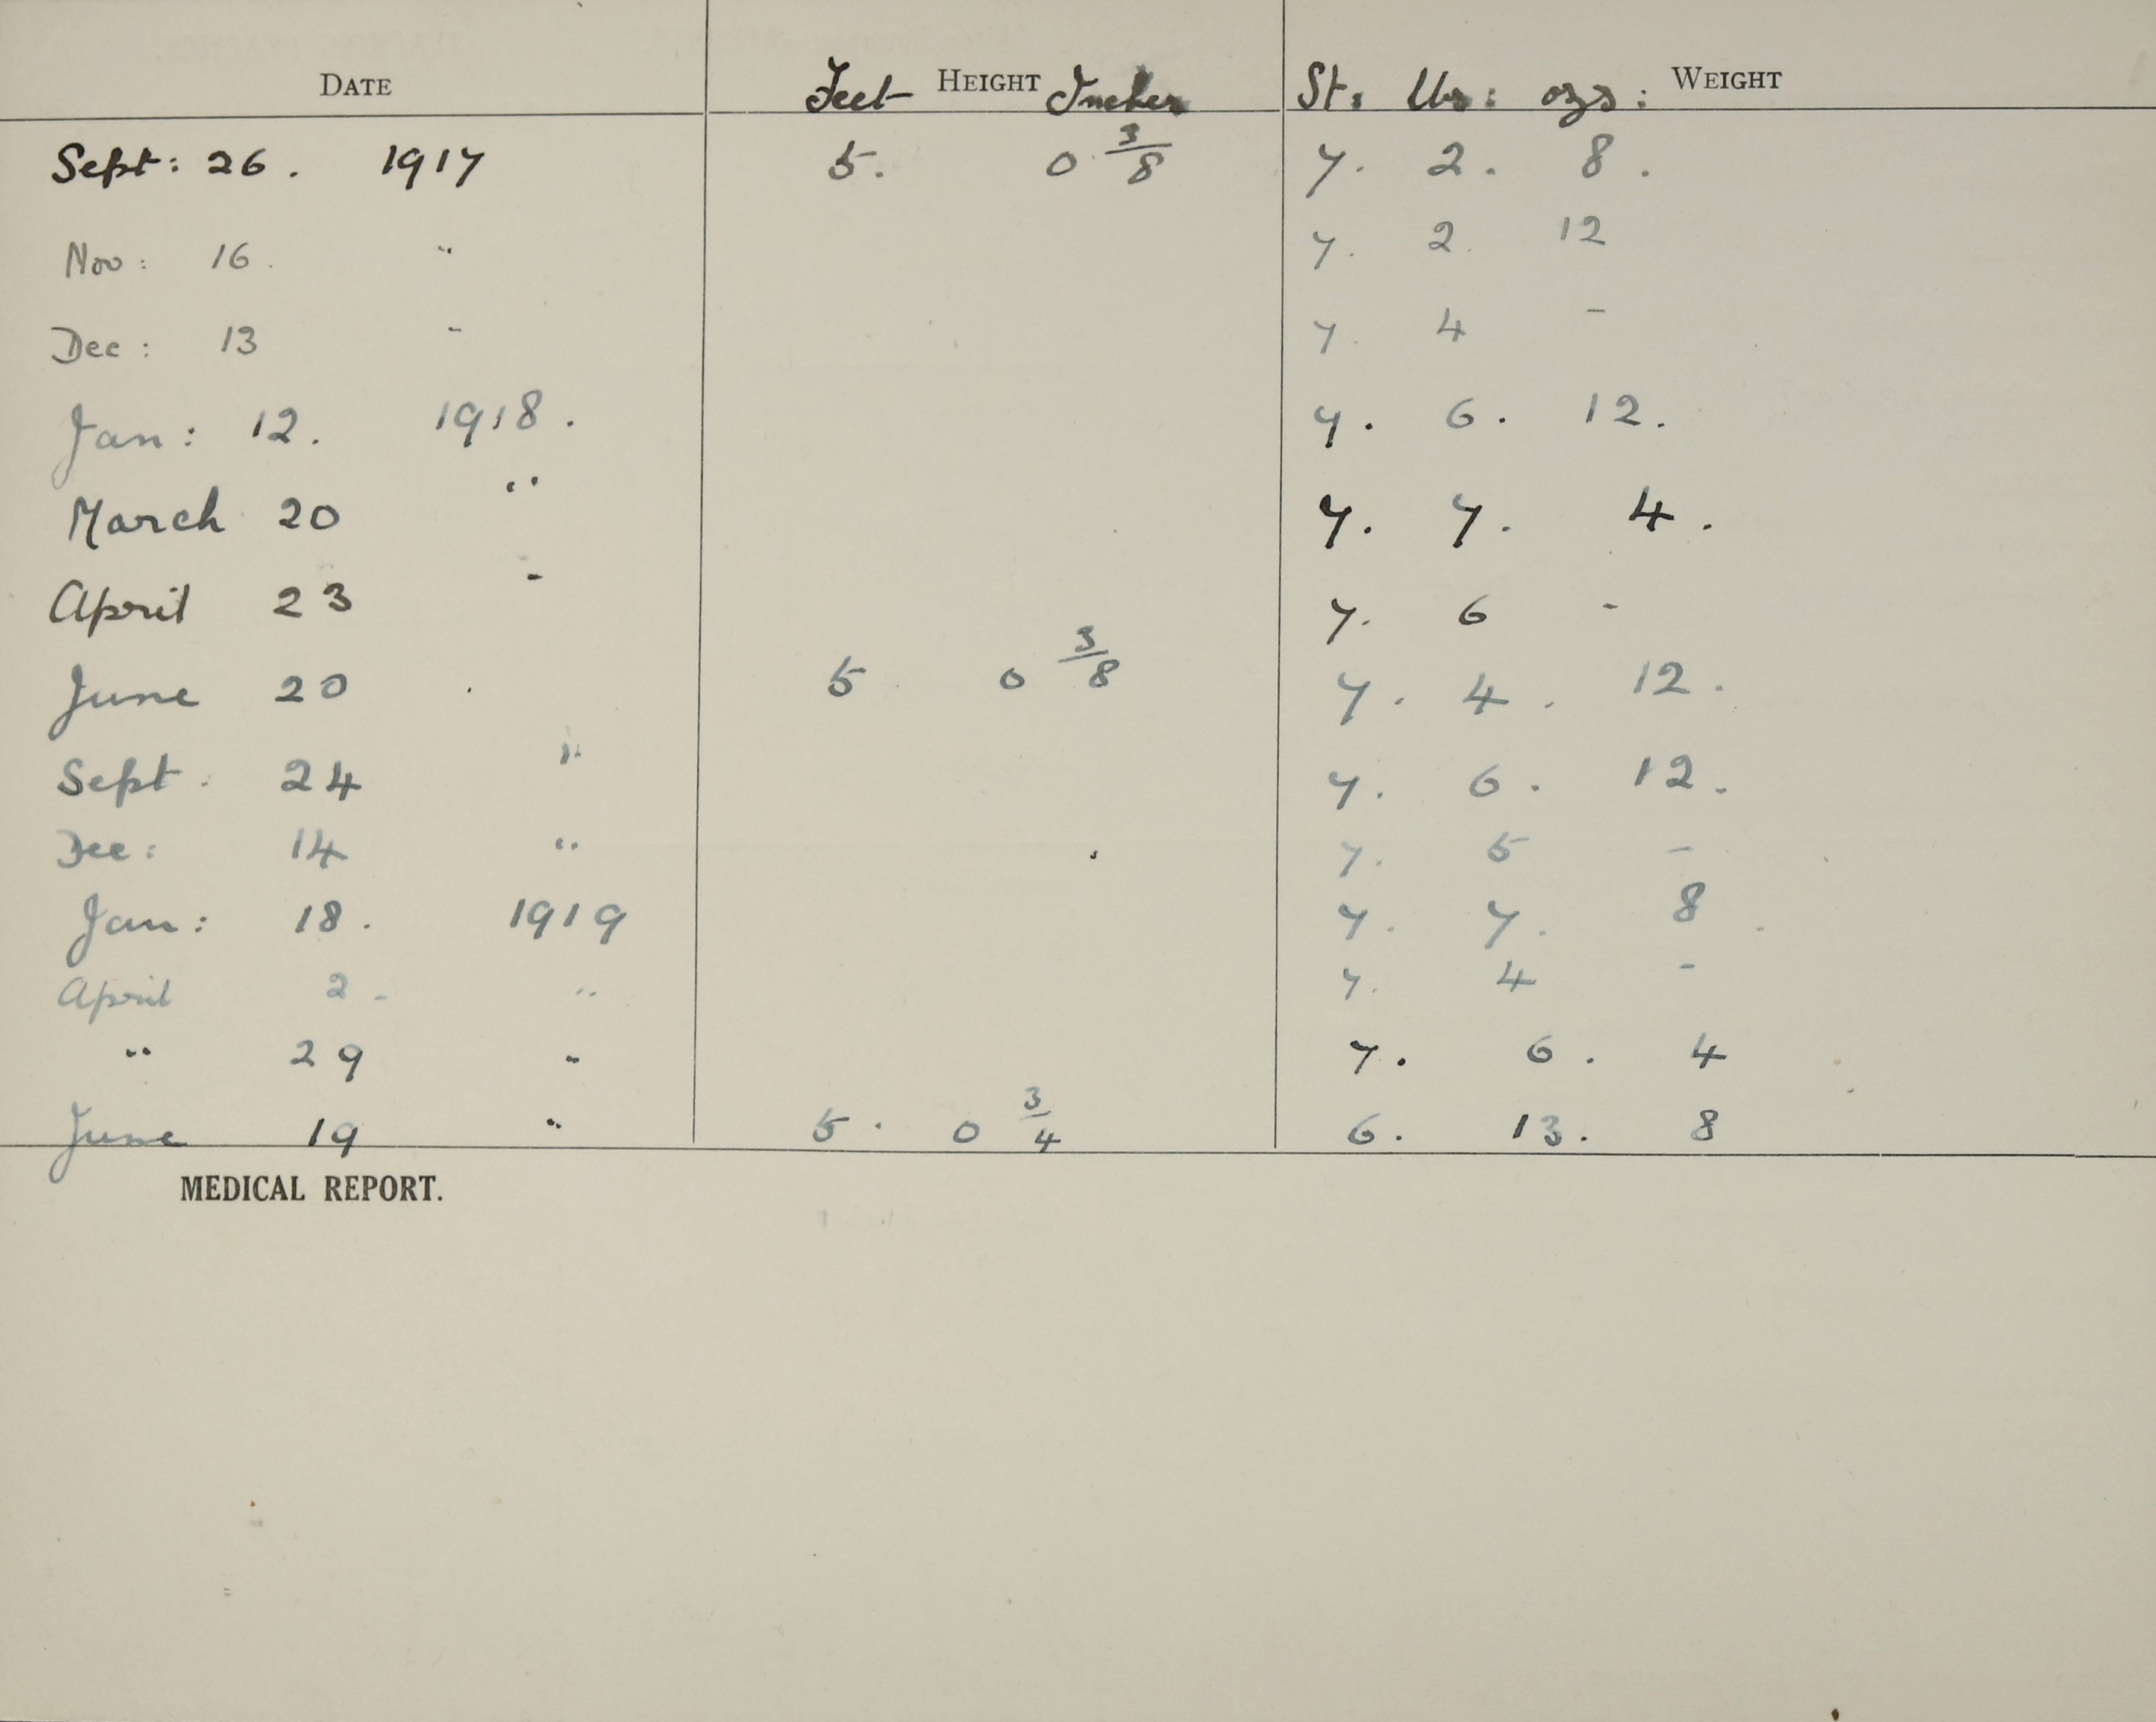 DATE Feet HEIGHT Inches St. lbs: ozs: WEIGHT
Sept: 26. 1917 5. 0 3/8 7. 2. 8.
Nov: 16. " 7. 2. 12
Dec: 13 " 7. 4 -
Jan: 12. 1918. 7. 6. 12.
March 20 " 7. 7. 4.
April 23 " 7. 6 -
June 20 5 0 3/8 7. 4. 12.
Sept. 24 " 7. 6. 12.
Dec: 14 " 7. 5 -
Jan: 18. 1919 7. 7. 8.
April 2 - " 7. 4 -
" 29 " 7. 6. 4
June 19 " 5. 0 3/4 6. 13. 8
MEDICAL REPORT.